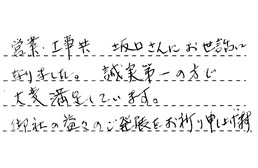 営業・工事共 坂口さんにお世話に
なりました。誠実第一の方で
大変満足しています。
御社の益々のご発展をお祈り申し上げます